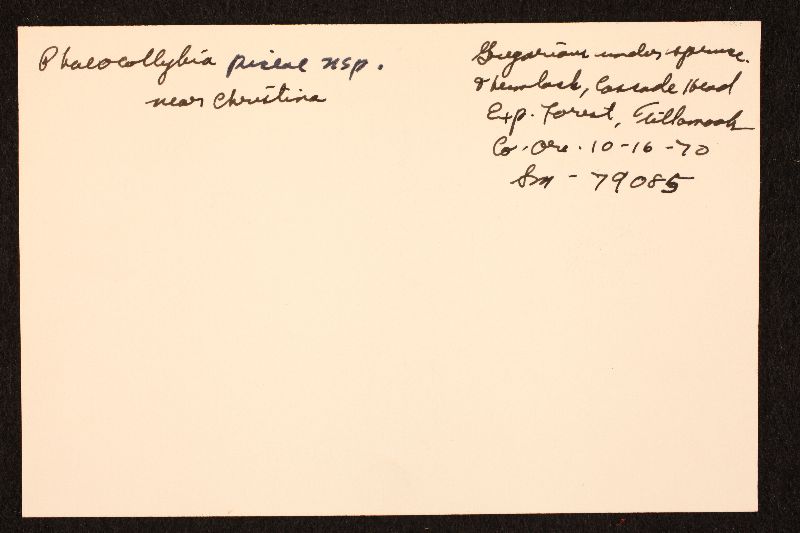 Phaeocollybia piceae nsp.
near Christina
Gregarious under spruce
& hemlock, Cascade Head
Exp. Forest, Tillamook
Co. Ore. 10-16-70
Sm - 79085